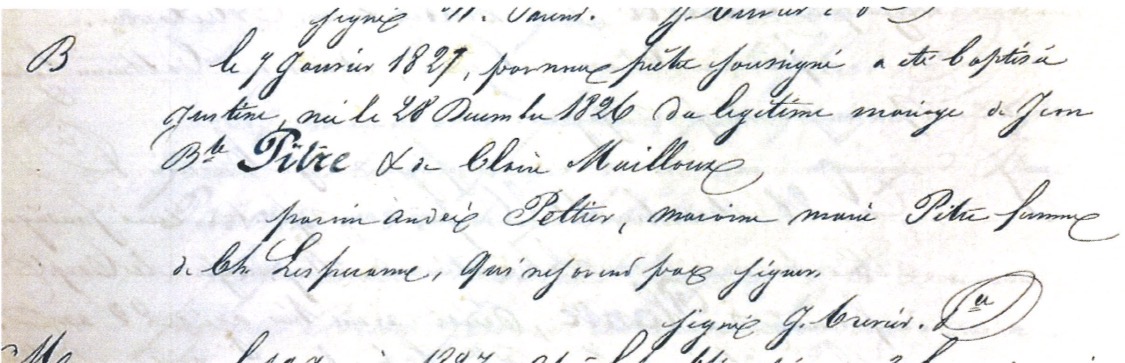 signé
B le 7 Janvier 1827, par nous prêtre soussigné a été baptisée
Justine, née le 28 Decembre 1826 du legitime mariage de Jean
Bte Pitre & de Claire Mailloux
parrin André Peltier, maraine marie Pitre femme
de Ch. Lesperance, qui ne savent pas signer.
signé J. Crevier. Ptre